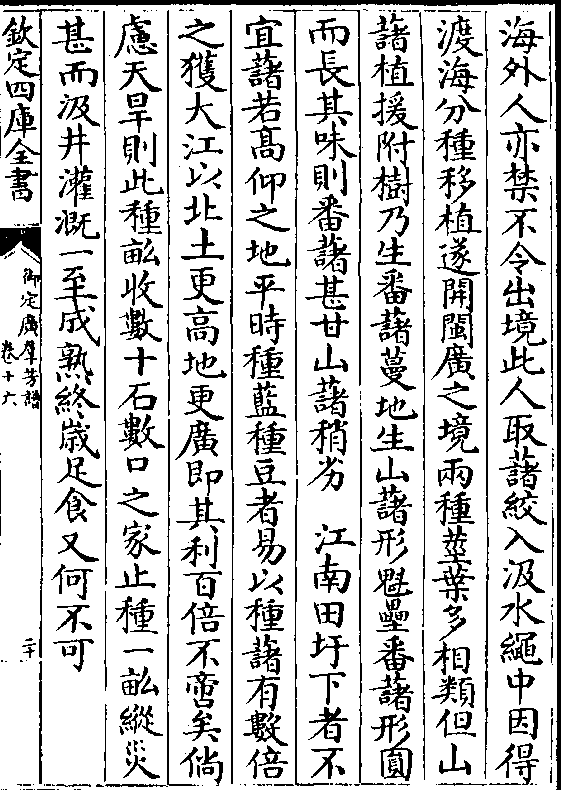 海外人亦禁不令出境此人取藷絞入汲水繩中因得
渡海分種移植遂開閩廣之境兩種莖葉多相類但山
藷植援附樹乃生番藷蔓地生山藷形魁壘番藷形圓
而長其味則番藷甚甘山藷稍劣　江南田圩下者不
宜藷若髙仰之地平時種藍種豆者易以種藷有數倍
之獲大江以北土更高地更廣即其利百倍不啻矣倘
慮天旱則此種畝收數十石數口之家止種一畝縱災
甚而汲井灌溉一至成熟終歳足食又何不可
欽定四庫全書
御定廣羣芳譜
卷十六
二十